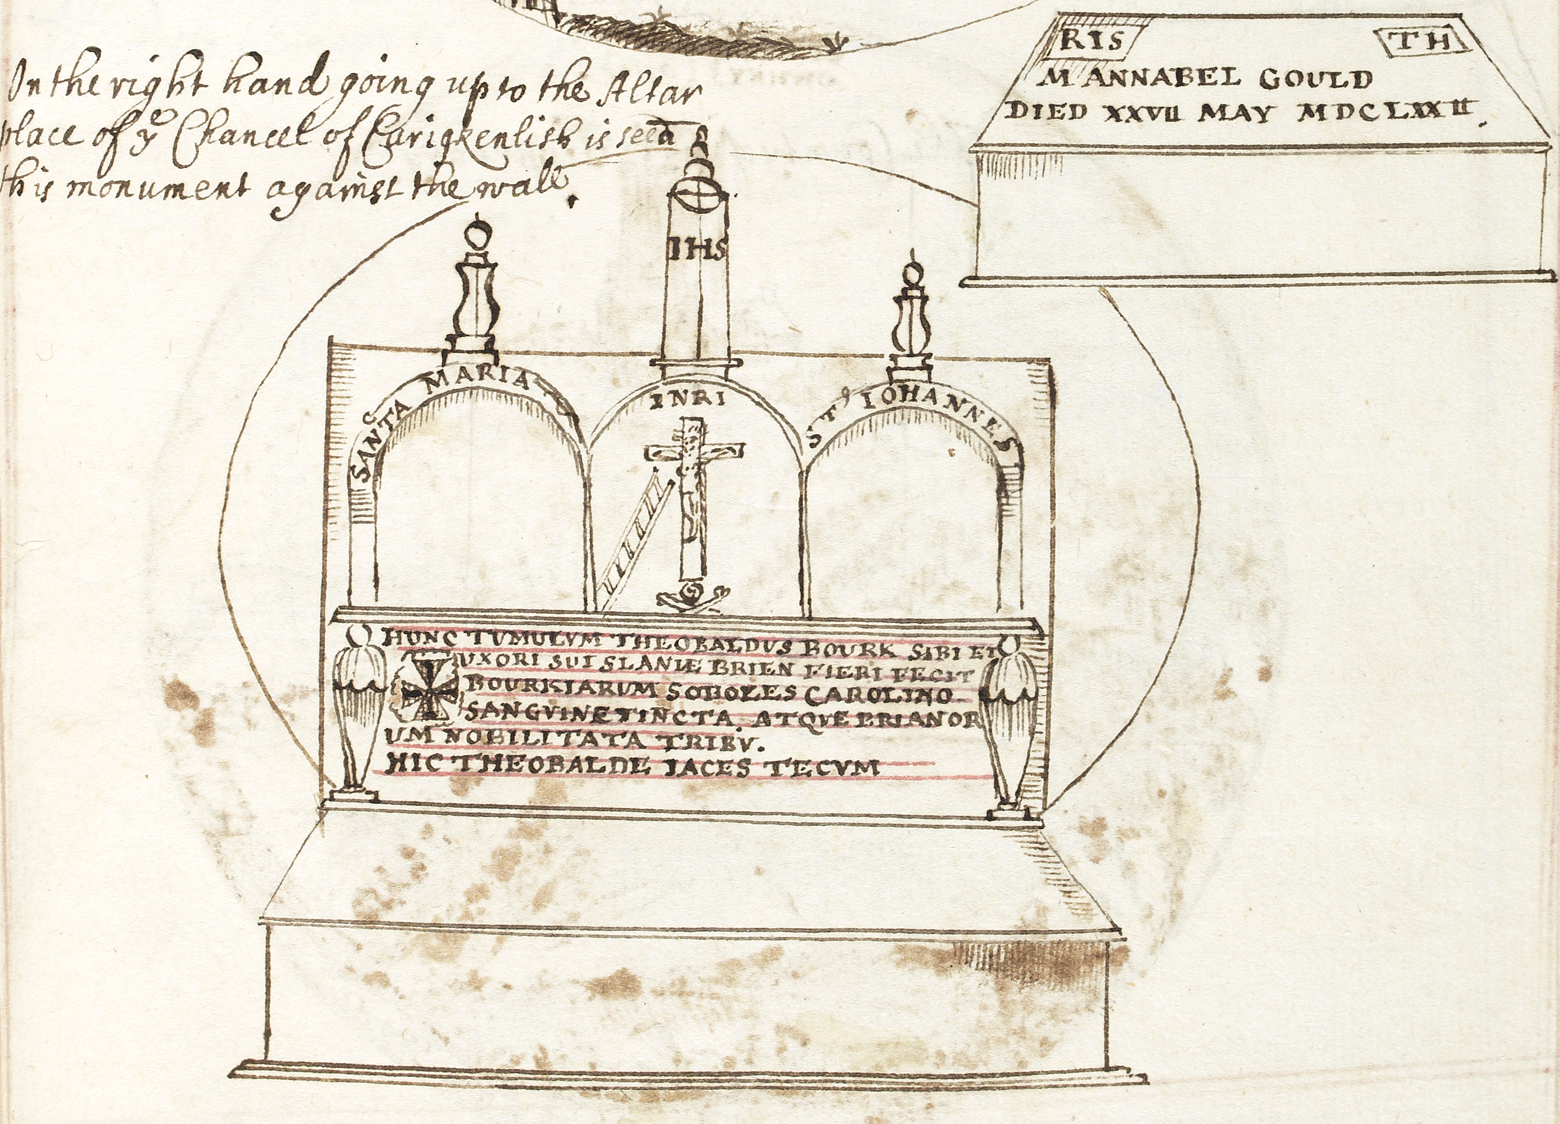 On the right hand going up to the Altar
place of yᵉ Chancel of Carigkenlish is seen
this monument against the wall.
RIS TH
M ANNABEL GOULD
DIED XXVII MAY MDCLXXII
IHS
SANCTA MARIA
INRI
STˢ IOHANNES
HUNC TUMULVM THEOBALDUS BOURK SIBI ET
UXORI SUI SLANIE BRIEN FIERI FECIT
BOURKIARUM SOBOLES CAROLINO
SANGVINE TINCTA, ATQVE BRIANOR
UM NOBILITATA TRIBV.
HIC THEOBALDE IACES TECVM